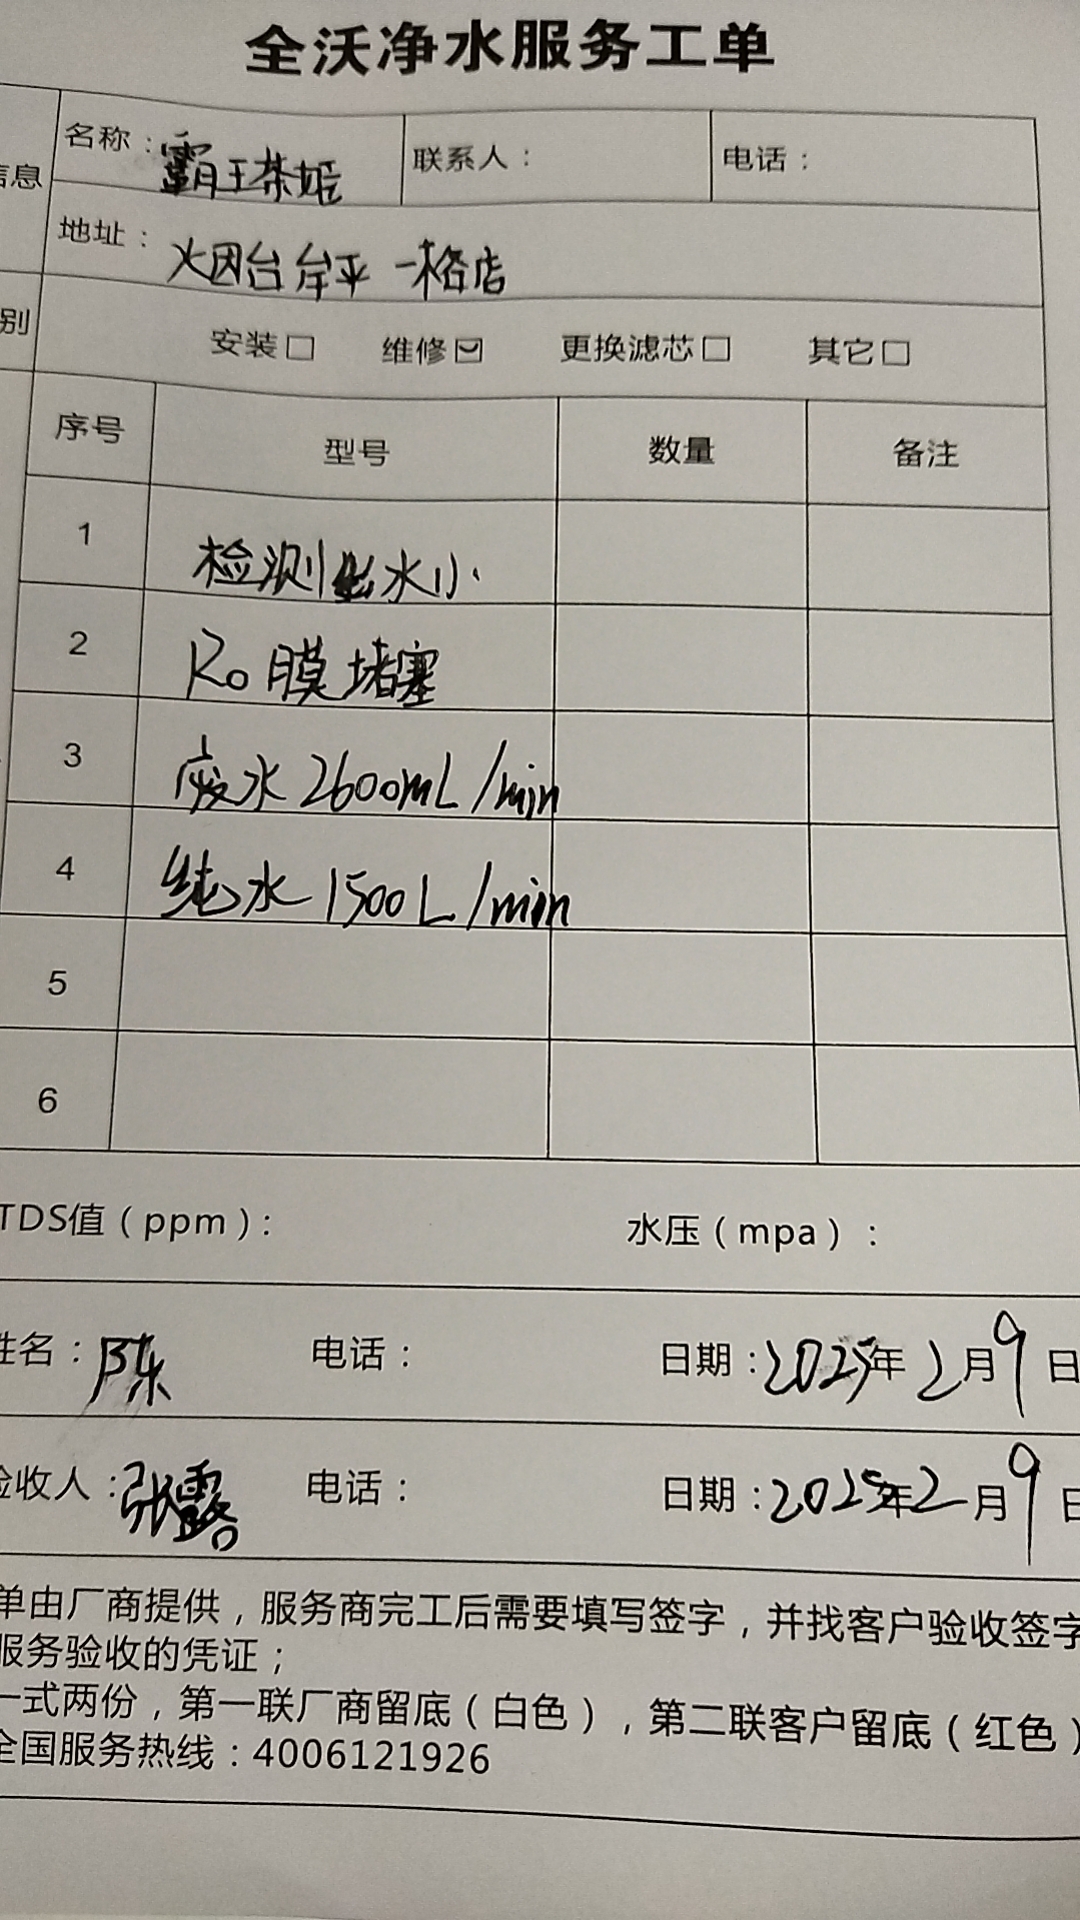 全沃净水服务工单
信息
名称：霸王茶姬 联系人： 电话：
地址：火因台 牟平 一格店
别
安装□ 维修☑ 更换滤芯□ 其它□
序号 型号 数量 备注
1 检测出水小
2 Ro膜堵塞
3 废水 2600mL/min
4 纯水 1500L/min
5
6
TDS值（ppm）： 水压（mpa）：
姓名：陈 电话： 日期：2025年2月9日
验收人：张露 电话： 日期：2025年2月9日
单由厂商提供，服务商完工后需要填写签字，并找客户验收签字
服务验收的凭证；
一式两份，第一联厂商留底（白色），第二联客户留底（红色）
全国服务热线：4006121926